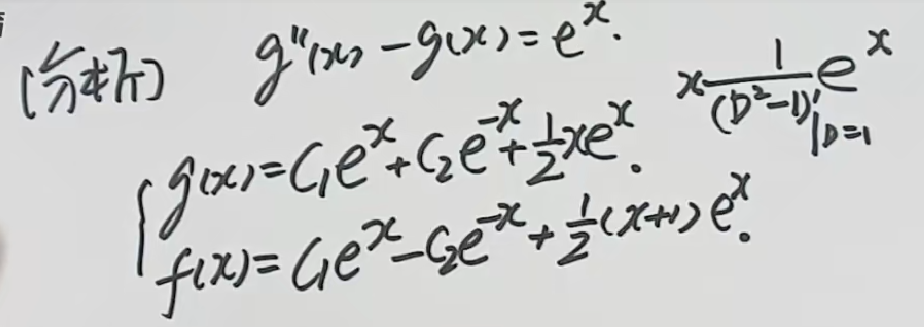 [分析] g''(x) - g(x) = e^x.
x \frac{1}{(D^2-1)'|_{D=1}} e^x
{ g(x) = C_1e^x + C_2e^{-x} + \frac{1}{2}xe^x.
f(x) = C_1e^x - C_2e^{-x} + \frac{1}{2}(x+1)e^x.